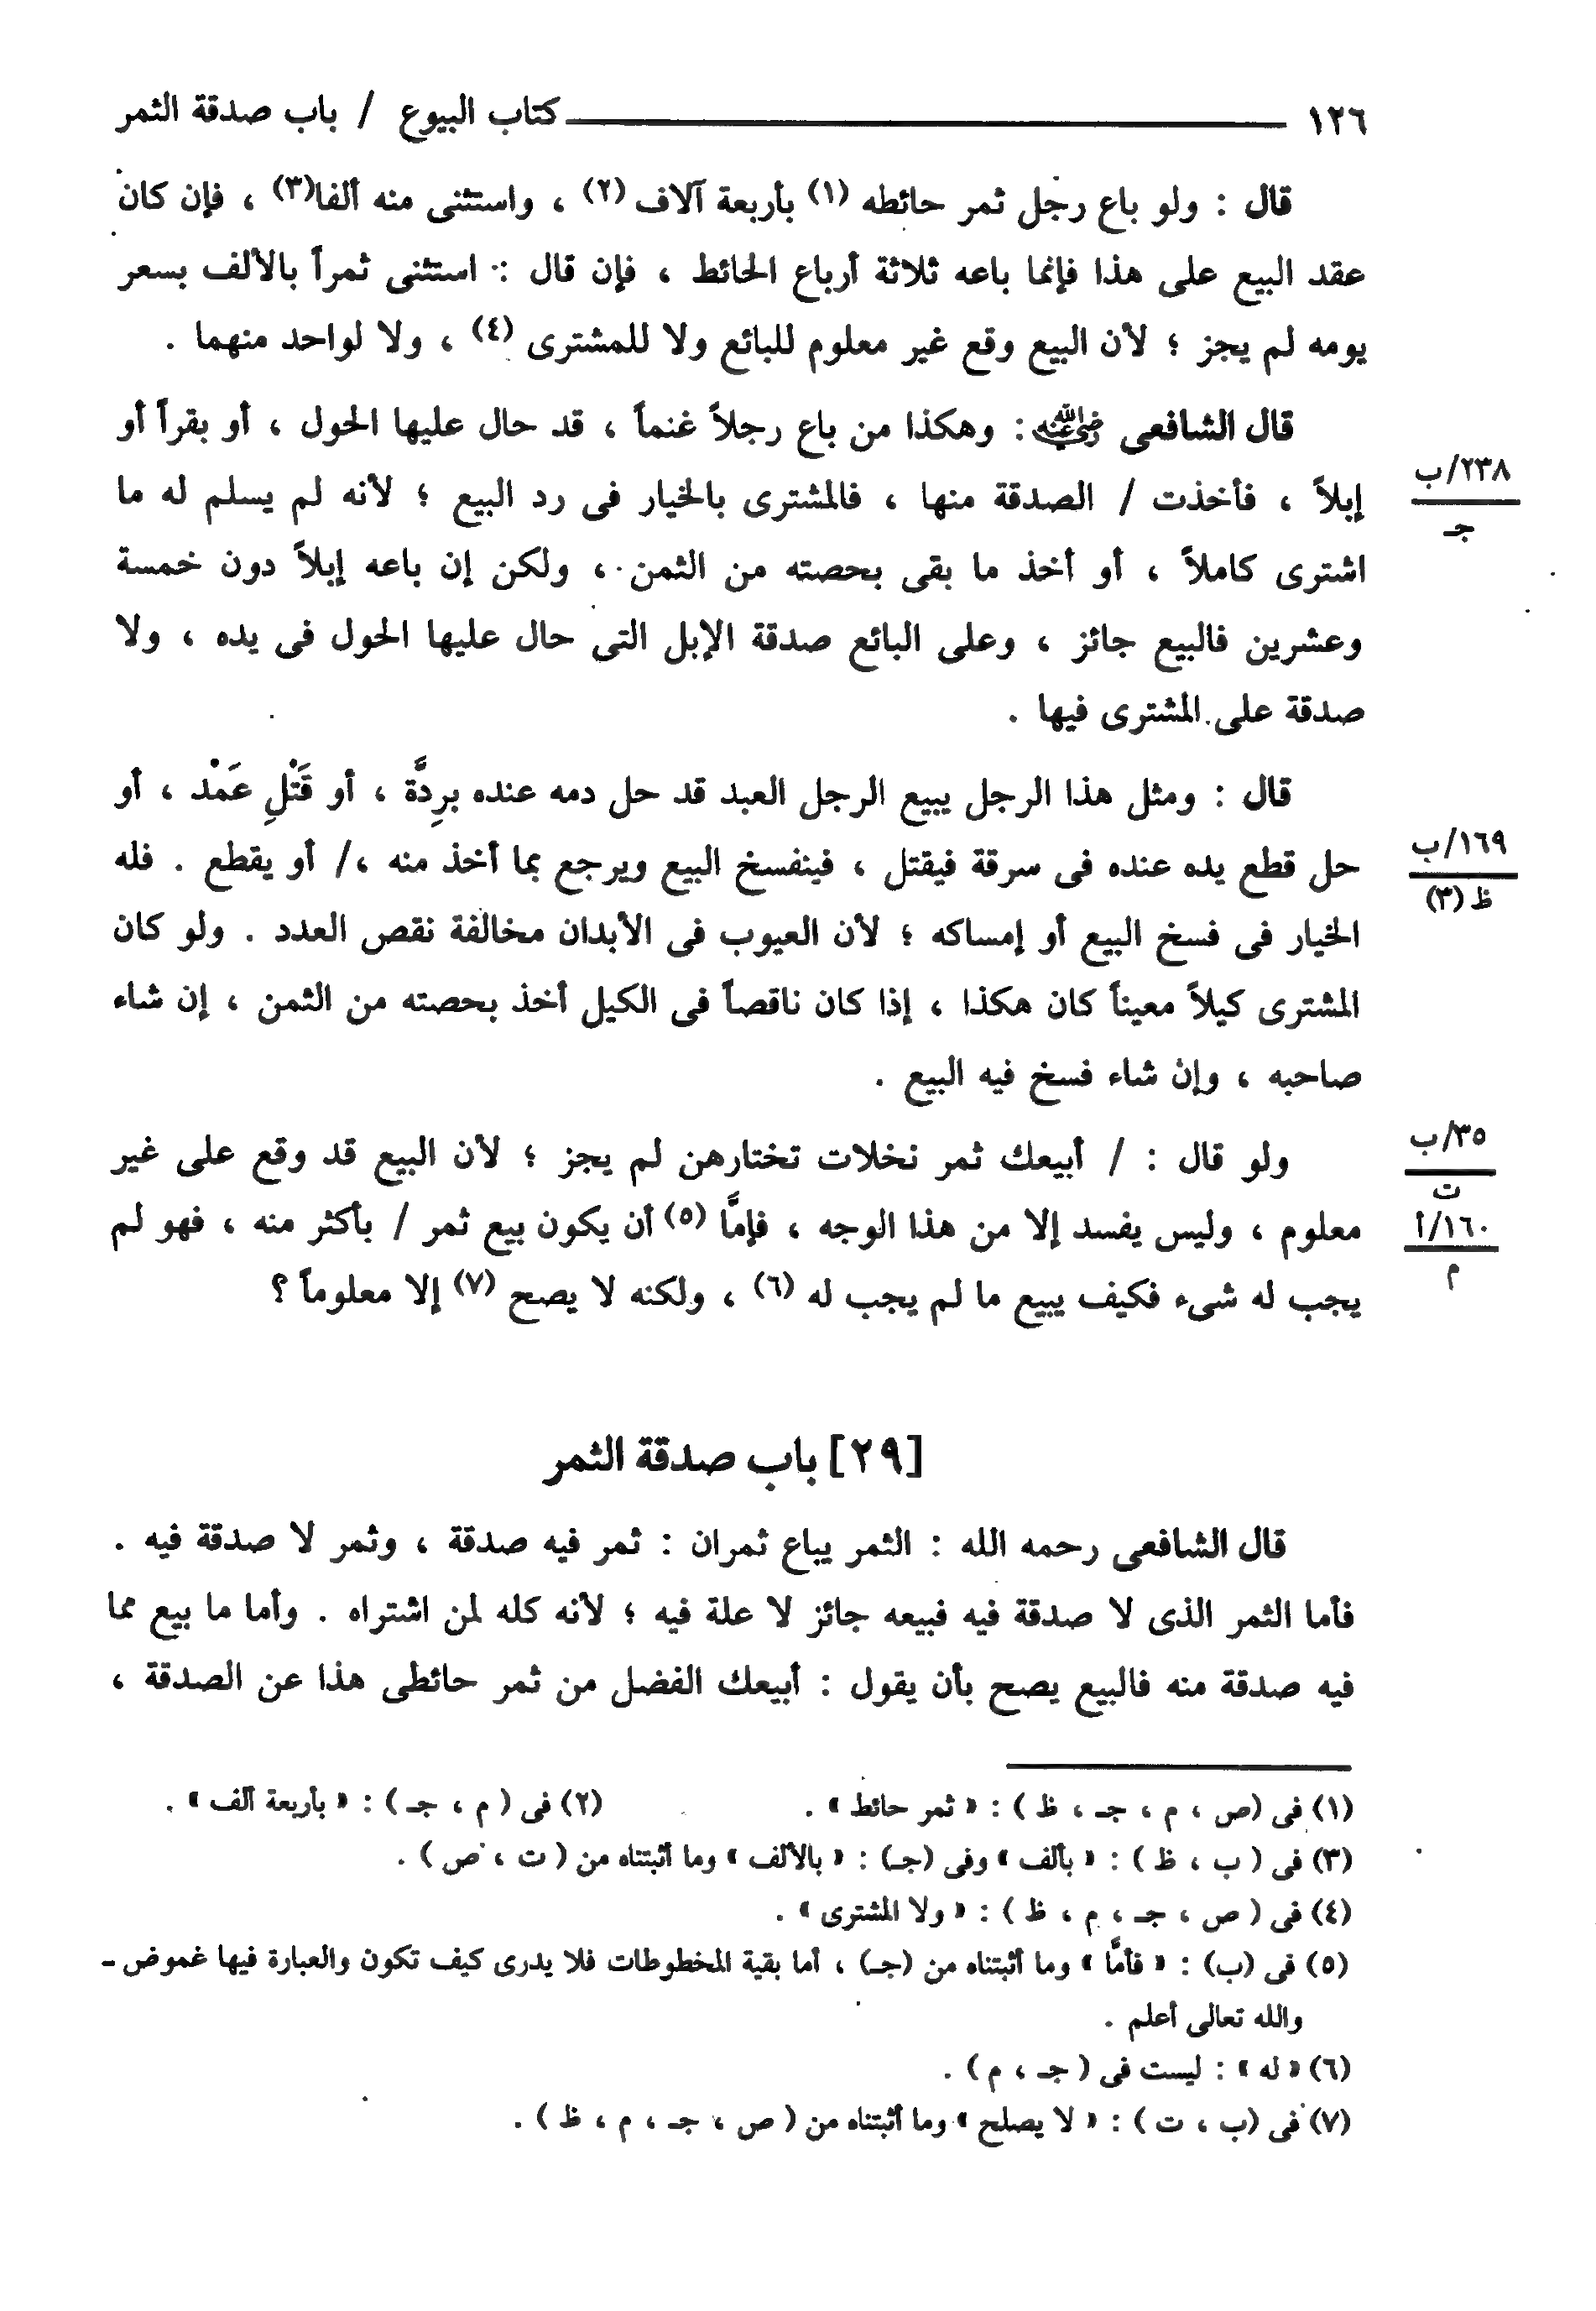 ١٢٦ كتاب البيوع / باب صدقة الثمر
قال : ولو باع رجل ثمر حائطه (١) بأربعة آلاف (٢) ، واستثنى منه ألفا(٣) ، فإن كان
عقد البيع على هذا فإنما باعه ثلاثة أرباع الحائط ، فإن قال : استثنى ثمراً بالألف بسعر
يومه لم يجز ؛ لأن البيع وقع غير معلوم للبائع ولا للمشترى (٤) ، ولا لواحد منهما .
قال الشافعى رضي الله عنه : وهكذا من باع رجلاً غنماً ، قد حال عليها الحول ، أو بقراً أو
٢٣٨/ب
إبلاً ، فأخذت / الصدقة منها ، فالمشترى بالخيار فى رد البيع ؛ لأنه لم يسلم له ما
جـ
اشترى كاملاً ، أو أخذ ما بقى بحصته من الثمن ، ولكن إن باعه إبلاً دون خمسة
وعشرين فالبيع جائز ، وعلى البائع صدقة الإبل التى حال عليها الحول فى يده ، ولا
صدقة على المشترى فيها .
قال : ومثل هذا الرجل يبيع الرجل العبد قد حل دمه عنده بِرِدَّة ، أو قَتْلِ عَمْد ، أو
١٦٩/ب
حل قطع يده عنده فى سرقة فيقتل ، فينفسخ البيع ويرجع بما أخذ منه ،/ أو يقطع . فله
ظ (٣)
الخيار فى فسخ البيع أو إمساكه ؛ لأن العيوب فى الأبدان مخالفة نقص العدد . ولو كان
المشترى كيلاً معيناً كان هكذا ، إذا كان ناقصاً فى الكيل أخذ بحصته من الثمن ، إن شاء
صاحبه ، وإن شاء فسخ فيه البيع .
٣٥/ب
ولو قال : / أبيعك ثمر نخلات تختارهن لم يجز ؛ لأن البيع قد وقع على غير
ت
١٦٠/أ
معلوم ، وليس يفسد إلا من هذا الوجه ، فإمَّا (٥) أن يكون بيع ثمر / بأكثر منه ، فهو لم
م
يجب له شىء فكيف يبيع ما لم يجب له (٦) ، ولكنه لا يصح (٧) إلا معلوماً ؟
[٢٩] باب صدقة الثمر
قال الشافعى رحمه الله : الثمر يباع ثمران : ثمر فيه صدقة ، وثمر لا صدقة فيه .
فأما الثمر الذى لا صدقة فيه فبيعه جائز لا علة فيه ؛ لأنه كله لمن اشتراه . وأما ما بيع مما
فيه صدقة منه فالبيع يصح بأن يقول : أبيعك الفضل من ثمر حائطى هذا عن الصدقة ،
(١) فى (ص ، م ، جـ ، ظ ) : « ثمر حائط » . (٢) فى ( م ، جـ ) : « بأربعة ألف » .
(٣) فى ( ب ، ظ ) : « بألف » وفى (جـ) : « بالألف » وما أثبتناه من ( ت ، ص ) .
(٤) فى ( ص ، جـ ، م ، ظ ) : « ولا المشترى » .
(٥) فى (ب) : « فأمَّا » وما أثبتناه من (جـ) ، أما بقية المخطوطات فلا يدرى كيف تكون والعبارة فيها غموض ـ
والله تعالى أعلم .
(٦) « له » : ليست فى ( جـ ، م ) .
(٧) فى (ب ، ت ) : « لا يصلح » وما أثبتناه من ( ص ، جـ ، م ، ظ ) .